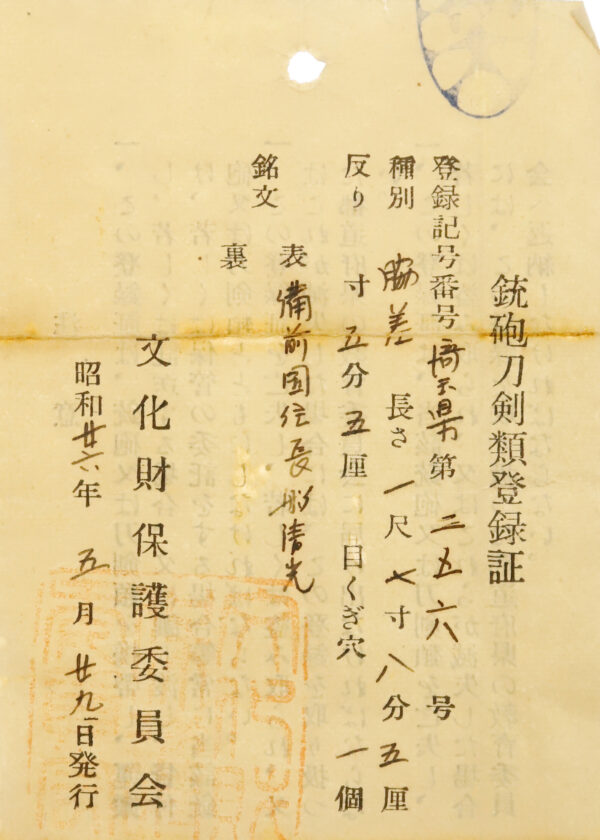 銃砲刀剣類登録証
登録記号番号 埼玉県 第 二五六八 号
種別 脇差 長さ 一尺七寸八分五厘
反り 寸五分五厘 目くぎ穴 一個
銘文 表 備前国住長船清光
裏
文化財保護委員会
昭和廿六年 五月 廿九日発行